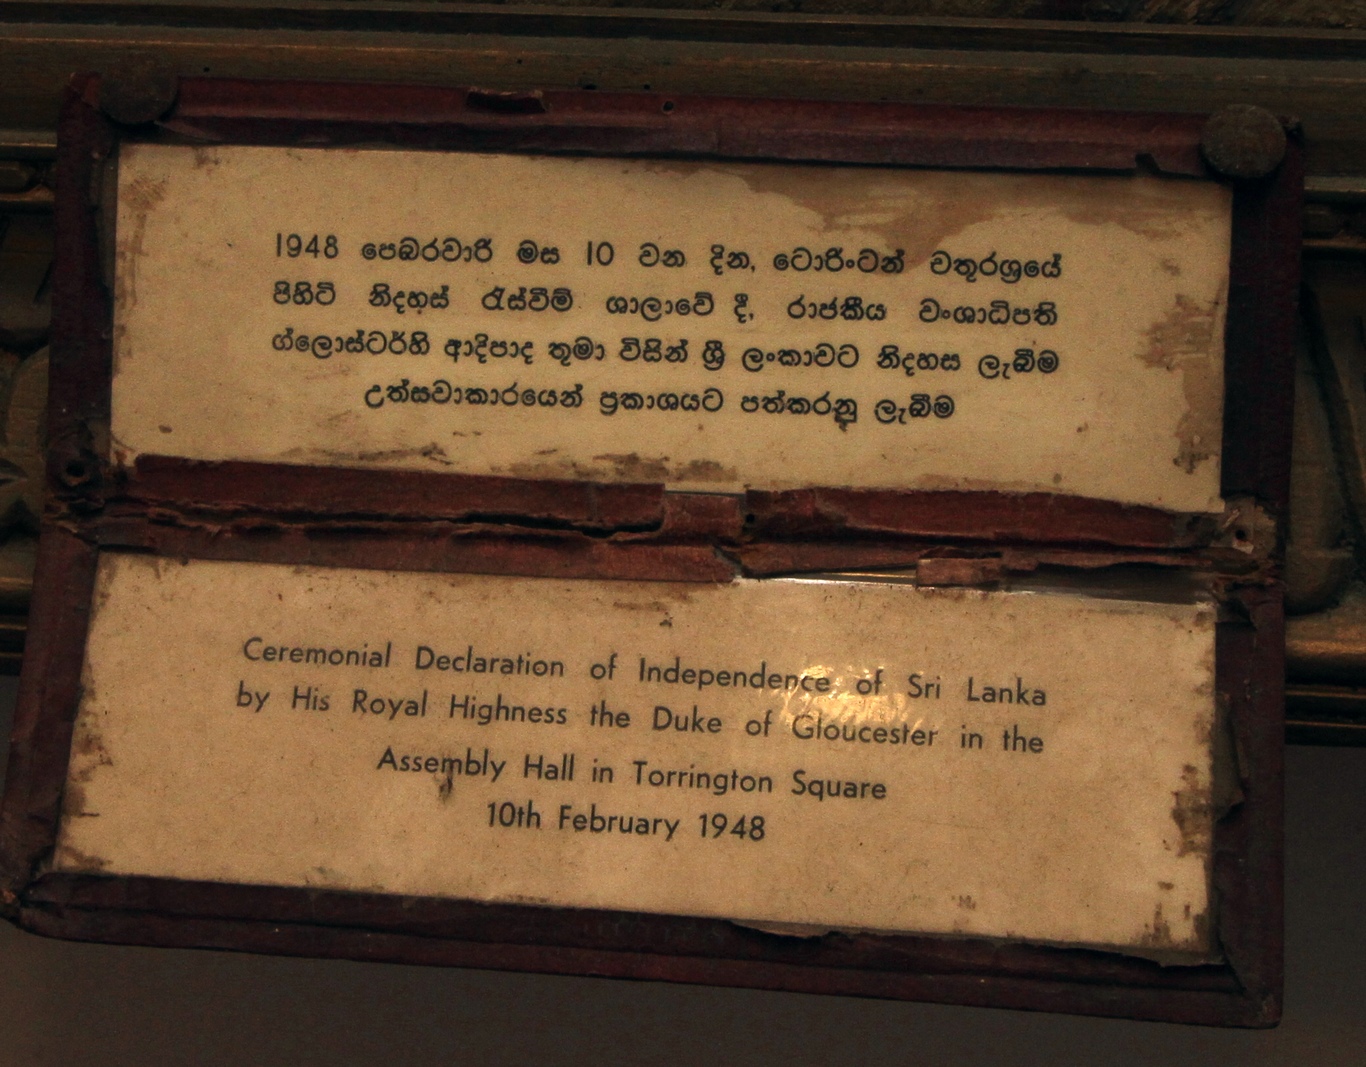 1948 පෙබරවාරි මස 10 වන දින, ටොරිංටන් චතුරශ්‍රයේ
පිහිටි නිදහස් රැස්වීම් ශාලාවේ දී, රාජකීය වංශාධිපති
ග්ලොස්ටර්හි ආදිපාද තුමා විසින් ශ්‍රී ලංකාවට නිදහස ලැබීම
උත්සවාකාරයෙන් ප්‍රකාශයට පත්කරනු ලැබීම
Ceremonial Declaration of Independence of Sri Lanka
by His Royal Highness the Duke of Gloucester in the
Assembly Hall in Torrington Square
10th February 1948